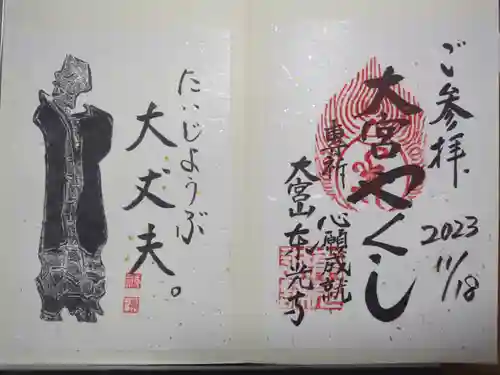 ご参拝
2023
11/18
大宮やくし
専祈 心願成就
大宮山 東光寺
たいじょうぶ
大丈夫。